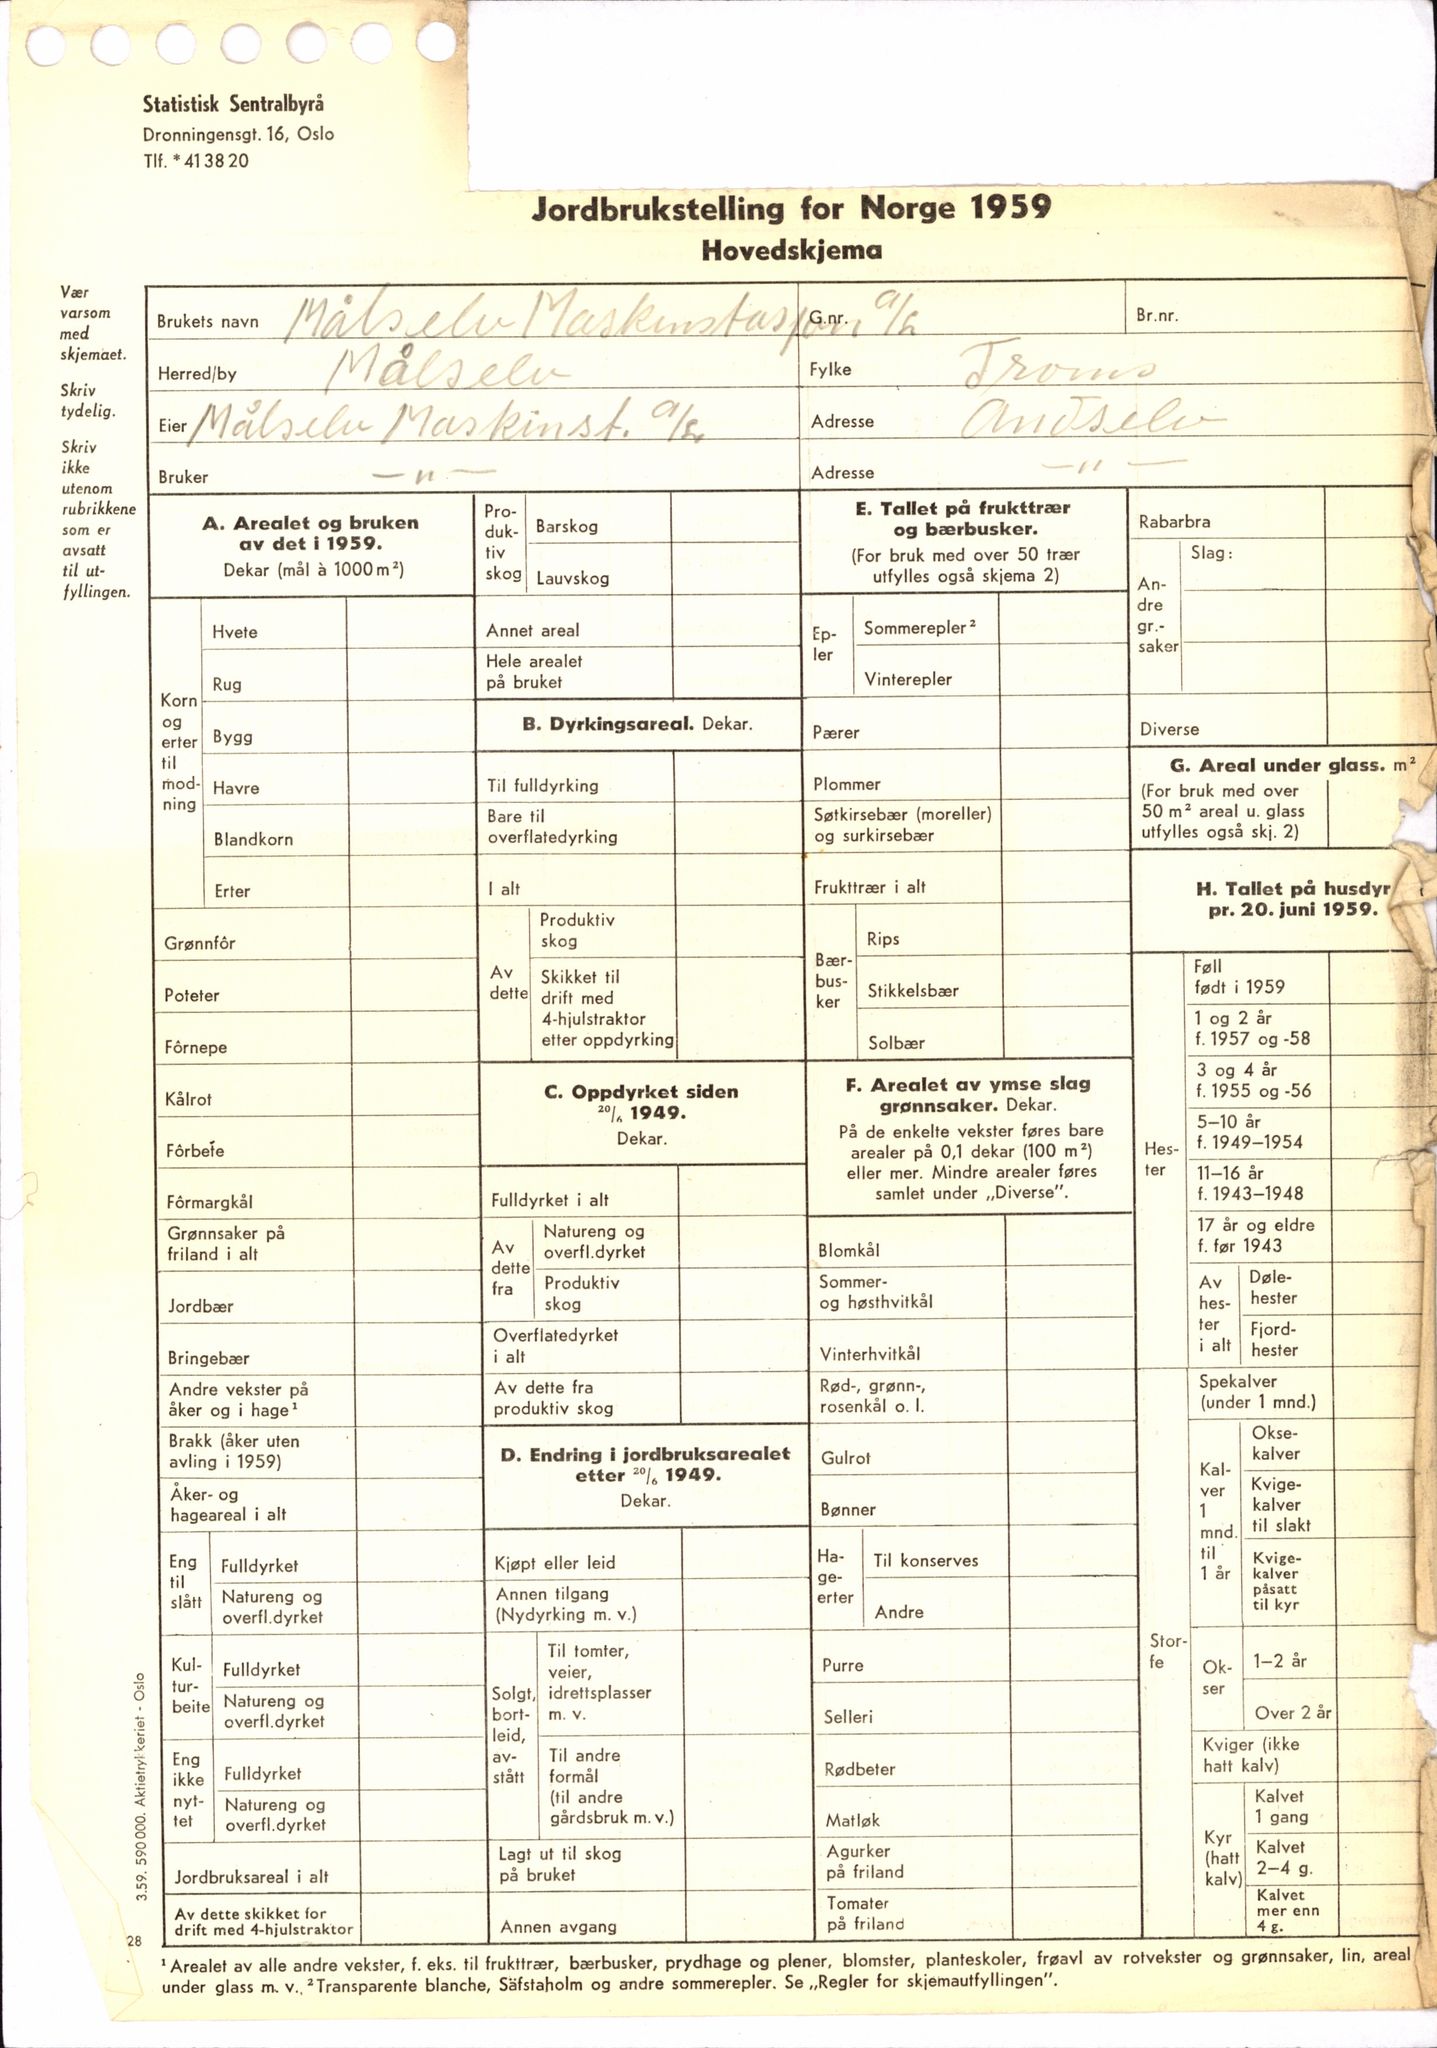 Statistisk Sentralbyrå
Dronningensgt. 16, Oslo
Tlf. *41 38 20
Jordbrukstelling for Norge 1959
Hovedskjema
Vær
varsom
med
skjemaet.
Skriv
tydelig.
Skriv
ikke
utenom
rubrikkene
som er
avsatt
til ut-
fyllingen.
Brukets navn Målselv Maskinstasjon a/l
G.nr.
Br.nr.
Herred/by Målselv
Fylke Troms
Eier Målselv Maskinst. a/l
Adresse Andselv
Bruker — " —
Adresse — " —
A. Arealet og bruken
av det i 1959.
Dekar (mål à 1000 m²)
Korn
og
erter
til
mod-
ning
Hvete
Rug
Bygg
Havre
Blandkorn
Erter
Grønnfôr
Poteter
Fôrnepe
Kålrot
Fôrbete
Fôrmargkål
Grønnsaker på
friland i alt
Jordbær
Bringebær
Andre vekster på
åker og i hage¹
Brakk (åker uten
avling i 1959)
Åker- og
hageareal i alt
Eng
til
slått
Fulldyrket
Natureng og
overfl.dyrket
Kul-
tur-
beite
Fulldyrket
Natureng og
overfl.dyrket
Eng
ikke
nyt-
tet
Fulldyrket
Natureng og
overfl.dyrket
Jordbruksareal i alt
Av dette skikket for
drift med 4-hjulstraktor
Pro-
duk-
tiv
skog
Barskog
Lauvskog
Annet areal
Hele arealet
på bruket
B. Dyrkingsareal. Dekar.
Til fulldyrking
Bare til
overflatedyrking
I alt
Av
dette
Produktiv
skog
Skikket til
drift med
4-hjulstraktor
etter oppdyrking
C. Oppdyrket siden
20/6 1949.
Dekar.
Fulldyrket i alt
Av
dette
fra
Natureng og
overfl.dyrket
Produktiv
skog
Overflatedyrket
i alt
Av dette fra
produktiv skog
D. Endring i jordbruksarealet
etter 20/6 1949.
Dekar.
Kjøpt eller leid
Annen tilgang
(Nydyrking m. v.)
Solgt,
bort-
leid,
av-
stått
Til tomter,
veier,
idrettsplasser
m. v.
Til andre
formål
(til andre
gårdsbruk m. v.)
Lagt ut til skog
på bruket
Annen avgang
E. Tallet på frukttrær
og bærbusker.
(For bruk med over 50 trær
utfylles også skjema 2)
Ep-
ler
Sommerepler²
Vinterepler
Pærer
Plommer
Søtkirsebær (moreller)
og surkirsebær
Frukttrær i alt
Bær-
bus-
ker
Rips
Stikkelsbær
Solbær
F. Arealet av ymse slag
grønnsaker. Dekar.
På de enkelte vekster føres bare
arealer på 0,1 dekar (100 m²)
eller mer. Mindre arealer føres
samlet under „Diverse".
Blomkål
Sommer-
og høsthvitkål
Vinterhvitkål
Rød-, grønn-,
rosenkål o. l.
Gulrot
Bønner
Ha-
ge-
erter
Til konserves
Andre
Purre
Selleri
Rødbeter
Matløk
Agurker
på friland
Tomater
på friland
Rabarbra
An-
dre
gr.-
saker
Slag:
Diverse
G. Areal under glass. m²
(For bruk med over
50 m² areal u. glass
utfylles også skj. 2)
H. Tallet på husdyr
pr. 20. juni 1959.
Hes-
ter
Føll
født i 1959
1 og 2 år
f. 1957 og -58
3 og 4 år
f. 1955 og -56
5–10 år
f. 1949–1954
11–16 år
f. 1943–1948
17 år og eldre
f. før 1943
Av
hes-
ter
i alt
Døle-
hester
Fjord-
hester
Stor-
fe
Spekalver
(under 1 mnd.)
Kal-
ver
1
mnd.
til
1 år
Okse-
kalver
Kvige-
kalver
til slakt
Kvige-
kalver
påsatt
til kyr
Ok-
ser
1–2 år
Over 2 år
Kviger (ikke
hatt kalv)
Kyr
(hatt
kalv)
Kalvet
1 gang
Kalvet
2–4 g.
Kalvet
mer enn
4 g.
3.59. 590 000. Aktietrykkeriet - Oslo
28
¹ Arealet av alle andre vekster, f. eks. til frukttrær, bærbusker, prydhage og plener, blomster, planteskoler, frøavl av rotvekster og grønnsaker, lin, areal
under glass m. v. ² Transparente blanche, Säfstaholm og andre sommerepler. Se „Regler for skjemautfyllingen".